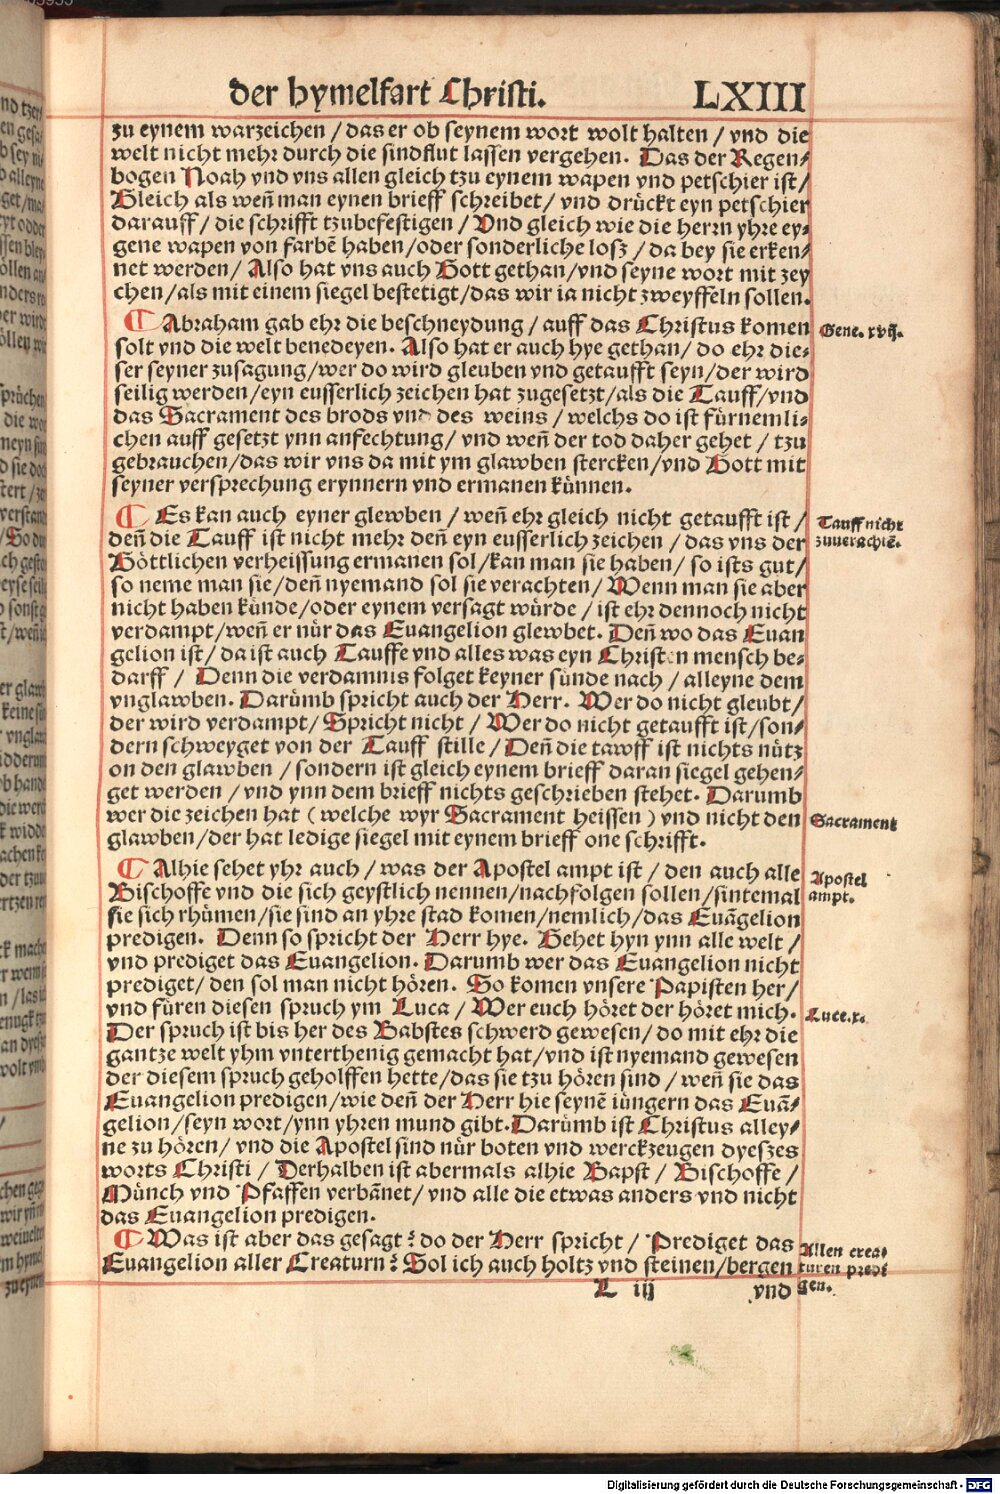 der hymelfart Christi. LXIII
zu eynem warzeichen / das er ob seynem wort wolt halten / vnd die
welt nicht mehr durch die sindflut lassen vergehen. Das der Regen⸗
bogen Noah vnd vns allen gleich tzu eynem wapen vnd petschier ist /
Gleich als weñ man eynen brieff schreibet / vnd drückt eyn petschier
darauff / die schrifft tzubefestigen / Vnd gleich wie die herrn yhre ey⸗
gene wapen von farbẽ haben / oder sonderliche losz / da bey sie erken⸗
net werden / Also hat vns auch Gott gethan / vnd seyne wort mit zey
chen / als mit einem siegel bestetigt / das wir ia nicht zweyffeln sollen.
¶ Abraham gab ehr die beschneydung / auff das Christus komen
Gene. xvij.
solt vnd die welt benedeyen. Also hat er auch hye gethan / do ehr die⸗
ser seyner zusagung / wer do wird gleuben vnd getaufft seyn / der wird
seilig werden / eyn eusserlich zeichen hat zugesetzt / als die Tauff / vnd
das Sacrament des brods vnd des weins / welchs do ist fürnemli⸗
chen auff gesetzt ynn anfechtung / vnd weñ der tod daher gehet / tzu
gebrauchen / das wir vns da mit ym glawben stercken / vnd Gott mit
seyner versprechung erynnern vnd ermanen künnen.
¶ Es kan auch eyner glewben / weñ ehr gleich nicht getaufft ist /
Tauff nicht
deñ die Tauff ist nicht mehr deñ eyn eusserlich zeichen / das vns der
zuuerachtẽ.
Göttlichen verheissung ermanen sol / kan man sie haben / so ists gut /
so neme man sie / deñ nyemand sol sie verachten / Wenn man sie aber
nicht haben künde / oder eynem versagt würde / ist ehr dennoch nicht
verdampt / weñ er nür das Euangelion glewbet. Deñ wo das Euan
gelion ist / da ist auch Tauffe vnd alles was eyn Christen mensch be⸗
darff / Denn die verdamnis folget keyner sünde nach / alleyne dem
vnglawben. Darümb spricht auch der Herr. Wer do nicht gleubt /
der wird verdampt / Spricht nicht / Wer do nicht getaufft ist / son⸗
dern schweyget von der Tauff stille / Deñ die tawff ist nichts nütz
on den glawben / sondern ist gleich eynem brieff daran siegel gehen⸗
get werden / vnd ynn dem brieff nichts geschrieben stehet. Darumb
wer die zeichen hat ( welche wyr Sacrament heissen ) vnd nicht den
Sacrament
glawben / der hat ledige siegel mit eynem brieff one schrifft.
¶ Alhie sehet yhr auch / was der Apostel ampt ist / den auch alle
Apostel
Bischoffe vnd die sich geystlich nennen / nachfolgen sollen / sintemal
ampt.
sie sich rhümen / sie sind an yhre stad komen / nemlich / das Euãgelion
predigen. Denn so spricht der Herr hye. Gehet hyn ynn alle welt /
vnd prediget das Euangelion. Darumb wer das Euangelion nicht
prediget / den sol man nicht hören. So komen vnsere Papisten her /
vnd füren diesen spruch ym Luca / Wer euch höret der höret mich.
Luce. x.
Der spruch ist bis her des Babstes schwerd gewesen / do mit ehr die
gantze welt yhm vnterthenig gemacht hat / vnd ist nyemand gewesen
der diesem spruch geholffen hette / das sie tzu hören sind / weñ sie das
Euangelion predigen / wie deñ der Herr hie seynẽ iüngern das Euã⸗
gelion / seyn wort / ynn yhren mund gibt. Darümb ist Christus alley⸗
ne zu hören / vnd die Apostel sind nür boten vnd werckzeugen dyeszes
worts Christi / Derhalben ist abermals alhie Bapst / Bischoffe /
Münch vnd Pfaffen verbãnet / vnd alle die etwas anders vnd nicht
das Euangelion predigen.
¶ Was ist aber das gesagt? do der Herr spricht / Prediget das
Allen crea⸗
Euangelion aller Creaturn? Sol ich auch holtz vnd steinen / bergen
turen predi
L iij vnd
gen.
Digitalisierung gefördert durch die Deutsche Forschungsgemeinschaft - DFG